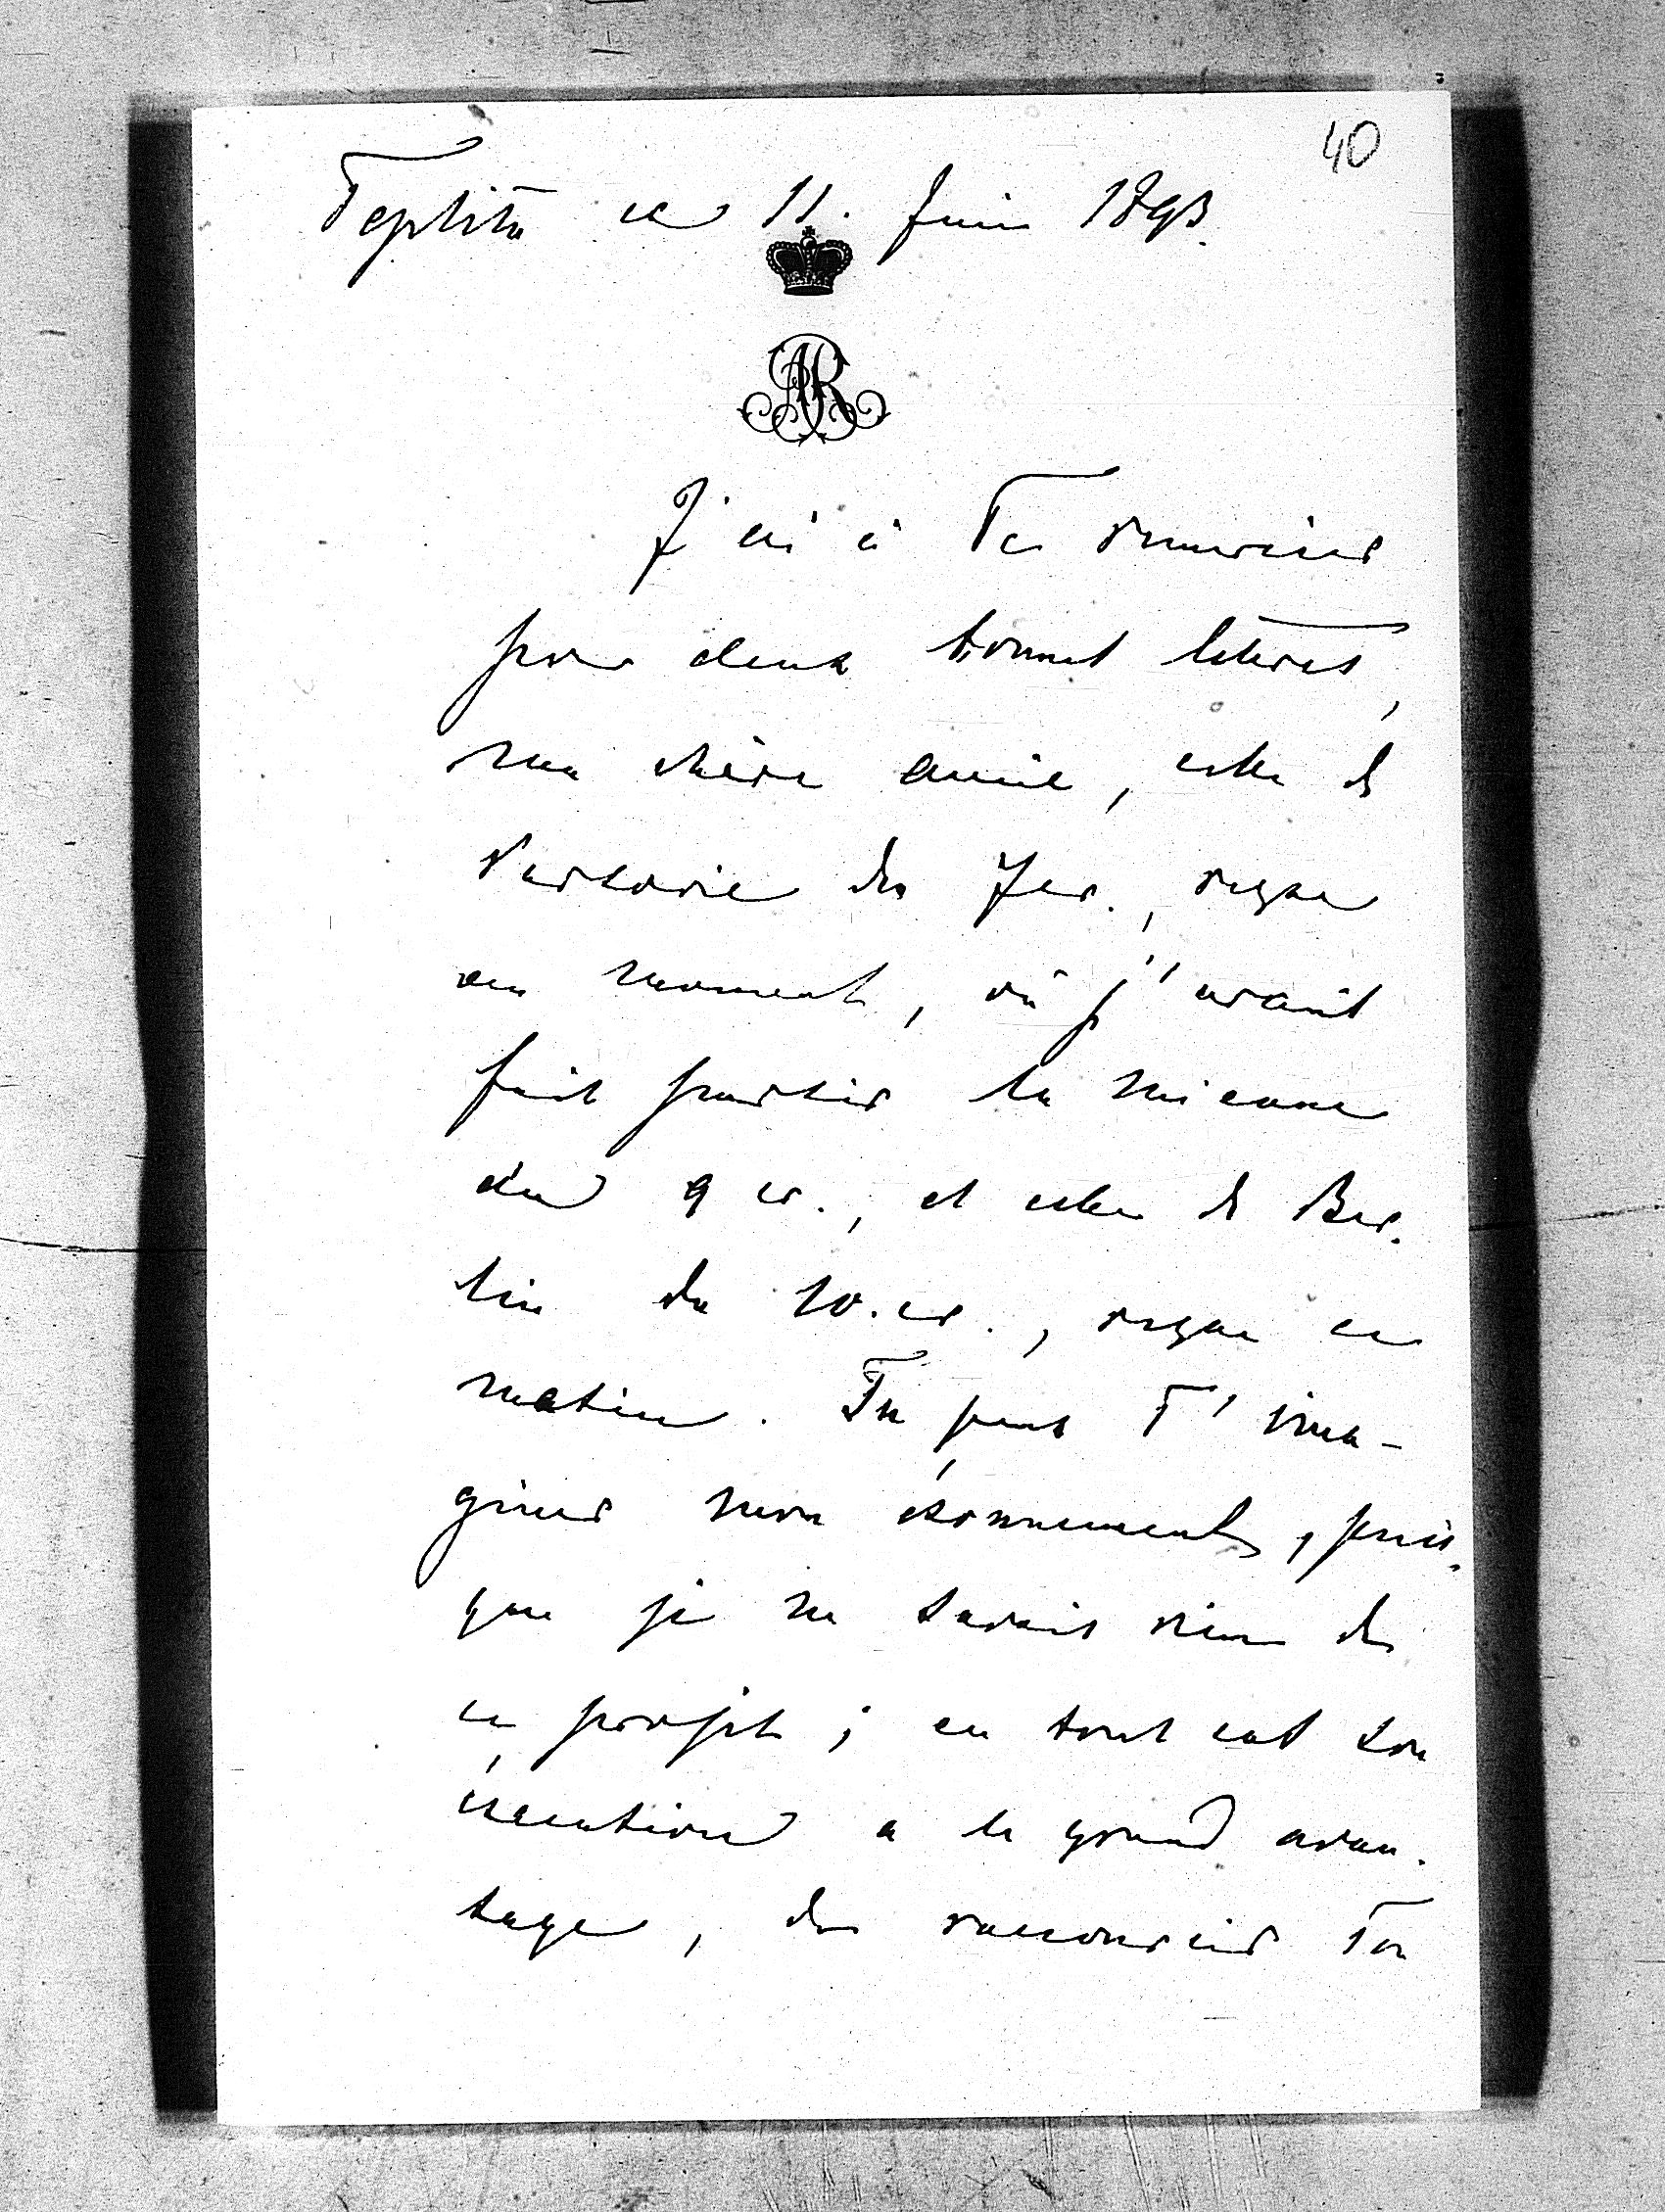 40
Teplitz ce 11. Juin 1893.
AR
J'ai à Te remercier
pour deux bonnes lettres,
ma chère amie, celle de
Varsovie du 7 cr., reçue
au moment, où j'avais
fait partir la mienne
du 9 cr., et celle de Ber-
lin du 10. cr., reçue ce
matin. Tu peux T'ima-
giner mon étonnement, puis-
que je ne savais rien de
ce projet; en tout cas son
exécution a le grand avan-
tage, de raccourcir Ton